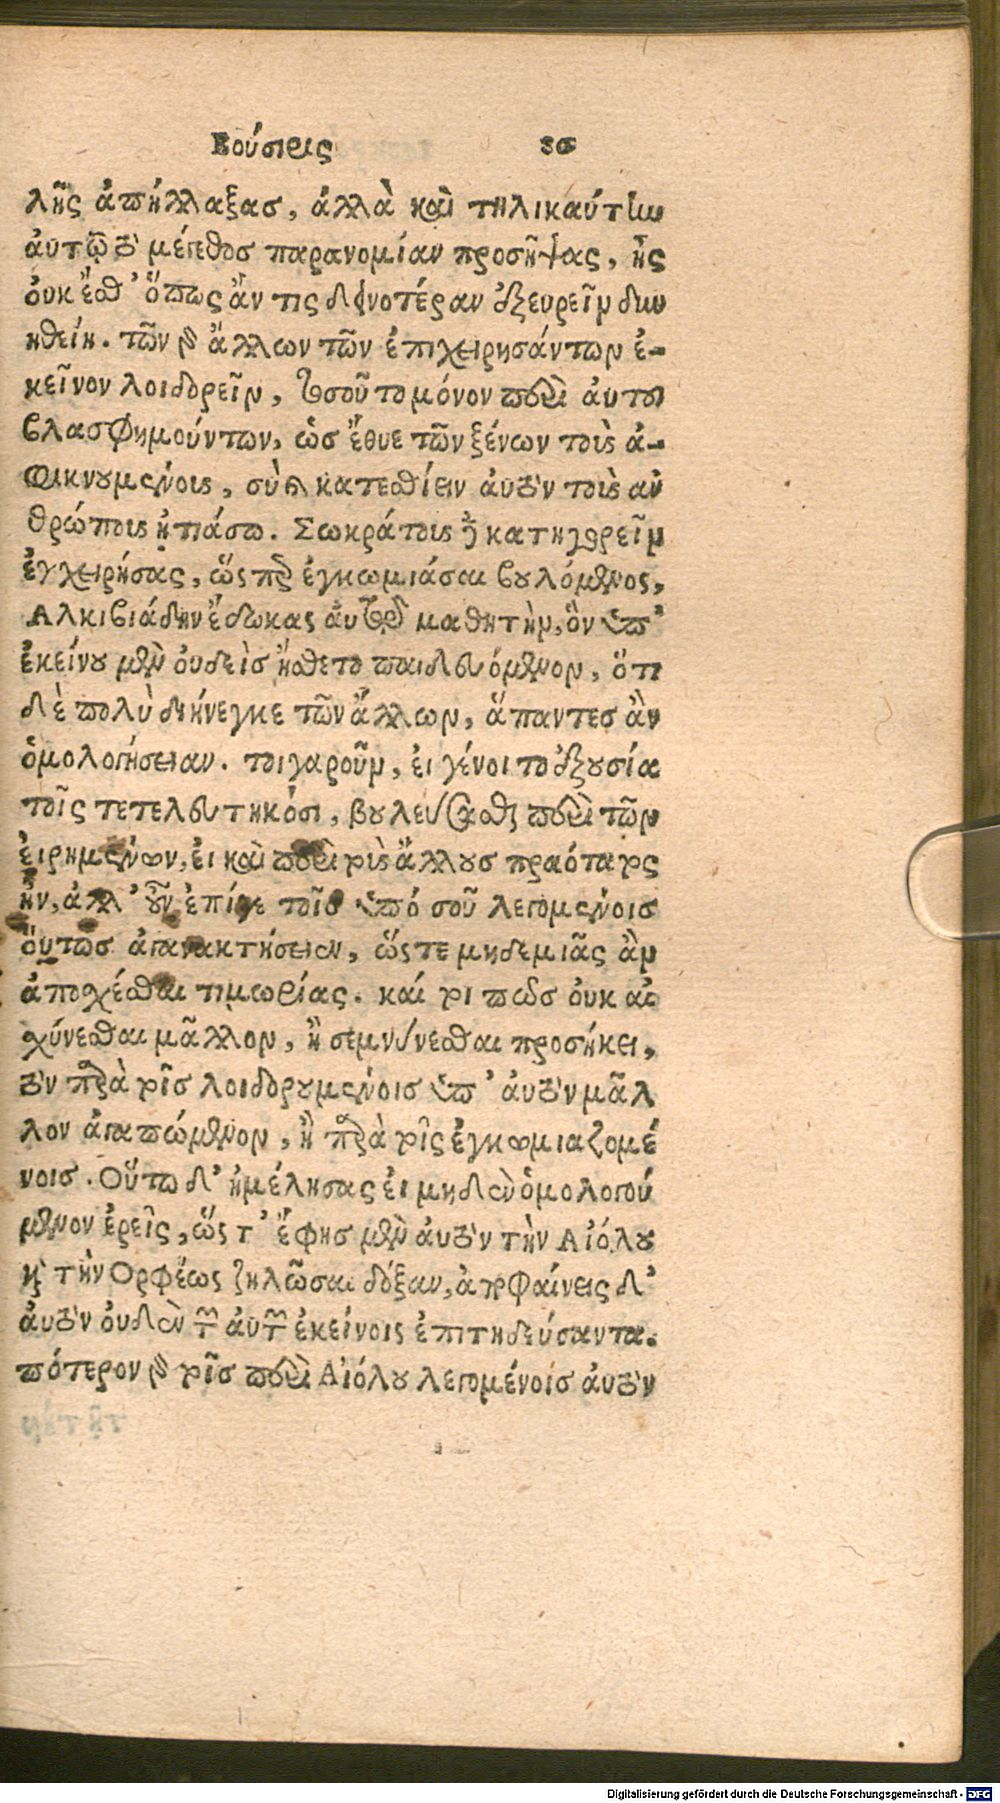 Βούσιρις 30
λῆς ἀπήλλαξας, ἀλλὰ καὶ τηλικαύτην
ἀυτῷ τὸ μέγεθος παρανομίαν προσῆψας, ἧς
ὀυκ ἔσθ' ὅπως ἄν τις δεινοτέραν ἐξευρεῖν δυν
ηθείη. τῶν γὰρ ἄλλων τῶν ἐπιχειρησάντων ἐ-
κεῖνον λοιδορεῖν, τοσοῦτο μόνον περὶ ἀυτοῦ
βλασφημούντων, ὡς ἔθυε τῶν ξένων τοὺς ἀ-
φικνουμένους, σὺ καὶ κατεσθίειν ἀυτὸν τοὺς ἀν
θρώπους ᾐτιάσω. Σωκράτους δὲ κατηγορεῖν
ἐγχειρήσας, ὥσπερ ἐγκωμιάσαι βουλόμενος,
Αλκιβιάδην ἔδωκας ἀυτῷ μαθητὴν, ὃν ὑπ'
ἐκείνου μὲν ὀυδεὶς ᾔσθετο παιδευόμενον, ὅτι
δὲ πολὺ διήνεγκε τῶν ἄλλων, ἅπαντες ἂν
ὁμολογήσειαν. τοιγαροῦν, ἐι γένοιτο ἐξουσία
τοῖς τετελευτηκόσι, βουλεύσασθαι περὶ τῶν
ἐιρημένων, ἐι καὶ περὶ τοὺς ἄλλους πραότατος
ἦν, ἀλλ' οὖν ἐπί γε τοῖς ὑπό σοῦ λεγομένοις
ὅυτως ἀγανακτήσειεν, ὥστε μηδεμιᾶς ἂν
ἀποσχέσθαι τιμωρίας. καί τοι πῶς ὀυκ αἰσ
χύνεσθαι μᾶλλον, ἢ σεμνύνεσθαι προσήκει,
τὸν παρὰ τοῖς λοιδορουμένοις ὑπ' ἀυτὸν μᾶλ
λον ἀγαπώμενον, ἢ παρὰ τοῖς ἐγκωμιαζομέ
νοις. Οὕτω δ' ἠμέλησας ἐι μηδὲν ὁμολογού
μενον ἐρεῖς, ὥς τ' ἔφης μὲν ἀυτὸν τὴν Αἰόλου
καὶ τὴν Ορφέως ζηλῶσαι δόξαν, ἀποφαίνεις δ'
ἀυτὸν ὀυδὲν τῶν ἀυτῶν ἐκείνοις ἐπιτηδεύσαντα.
πότερον γὰρ τοῖς περὶ Αἰόλου λεγομένοις ἀυτὸν
Digitalisierung gefördert durch die Deutsche Forschungsgemeinschaft - DFG